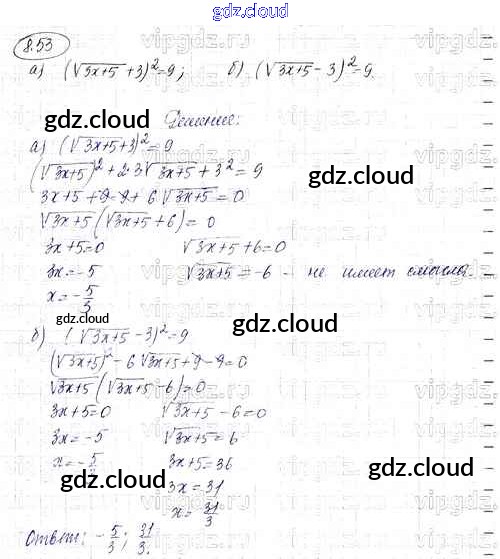 gdz.cloud
8.53
а) (√3x+5 +3)²=9; б) (√3x+5 -3)²=9
gdz.cloud
Решение:
а) (√3x+5+3)²=9
(√3x+5)²+2·3√3x+5+3²=9
gdz.cloud
3x+5+9-9+6√3x+5=0
√3x+5(√3x+5+6)=0
3x+5=0 √3x+5+6=0
3x=-5 √3x+5=-6 - не имеет смысла.
x=-5/3
gdz.cloud
gdz.cloud
б) (√3x+5-3)²=9
(√3x+5)²-6√3x+5+9-9=0
√3x+5(√3x+5-6)=0
3x+5=0 √3x+5-6=0
3x=-5 √3x+5=6
x=-5/3 3x+5=36
gdz.cloud
gdz.cloud
3x=31
x=31/3
Ответ: -5/3; 31/3.